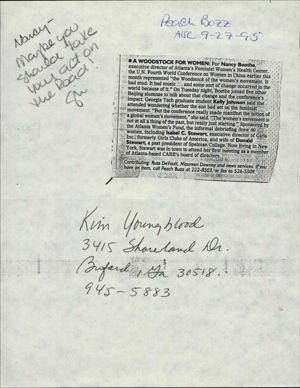 Nancy-
Maybe you
should take
your act on
the road!
Peach Buzz
AJC 9-27-95
A WOODSTOCK FOR WOMEN: For Nancy Boothe,
executive director of Atlanta's Feminist Women's Health Center,
the U.N. Fourth World Conference on Women in China earlier this
month represented "the Woodstock of the women's movement. It
had mud. It had music ... and some sort of change occurred in the
world because of it." On Tuesday night, Boothe joined five other
Beijing alumnae to talk about that change and the conference's
impact. Georgia Tech graduate student Kelly Johnson said she
attended wondering whether the sun had set on the feminist
movement. "But the conference really made manifest the notion of
a global women's movement," she said. "The women's movement is
not at all a thing of the past, but really just starting." Sponsored by
the Atlanta Women's Fund, the informal debriefing drew 40
women, including Isabel C. Stewart, executive director of Girls
Inc.; formerly Girls Clubs of America, and wife of Donald
Stewart, a past president of Spelman College. Now living in New
York, Stewart was in town to attend her first meeting as a member
of Atlanta-based CARE's board of directors.
Contributing: Russ DeVault, Maureen Downey and news services. If you
have an item, call Peach Buzz at 222-8503, or fax to 526-5509
Kim Youngblood
3415 Shoreland Dr.
Buford, Ga 30518.
945-5883